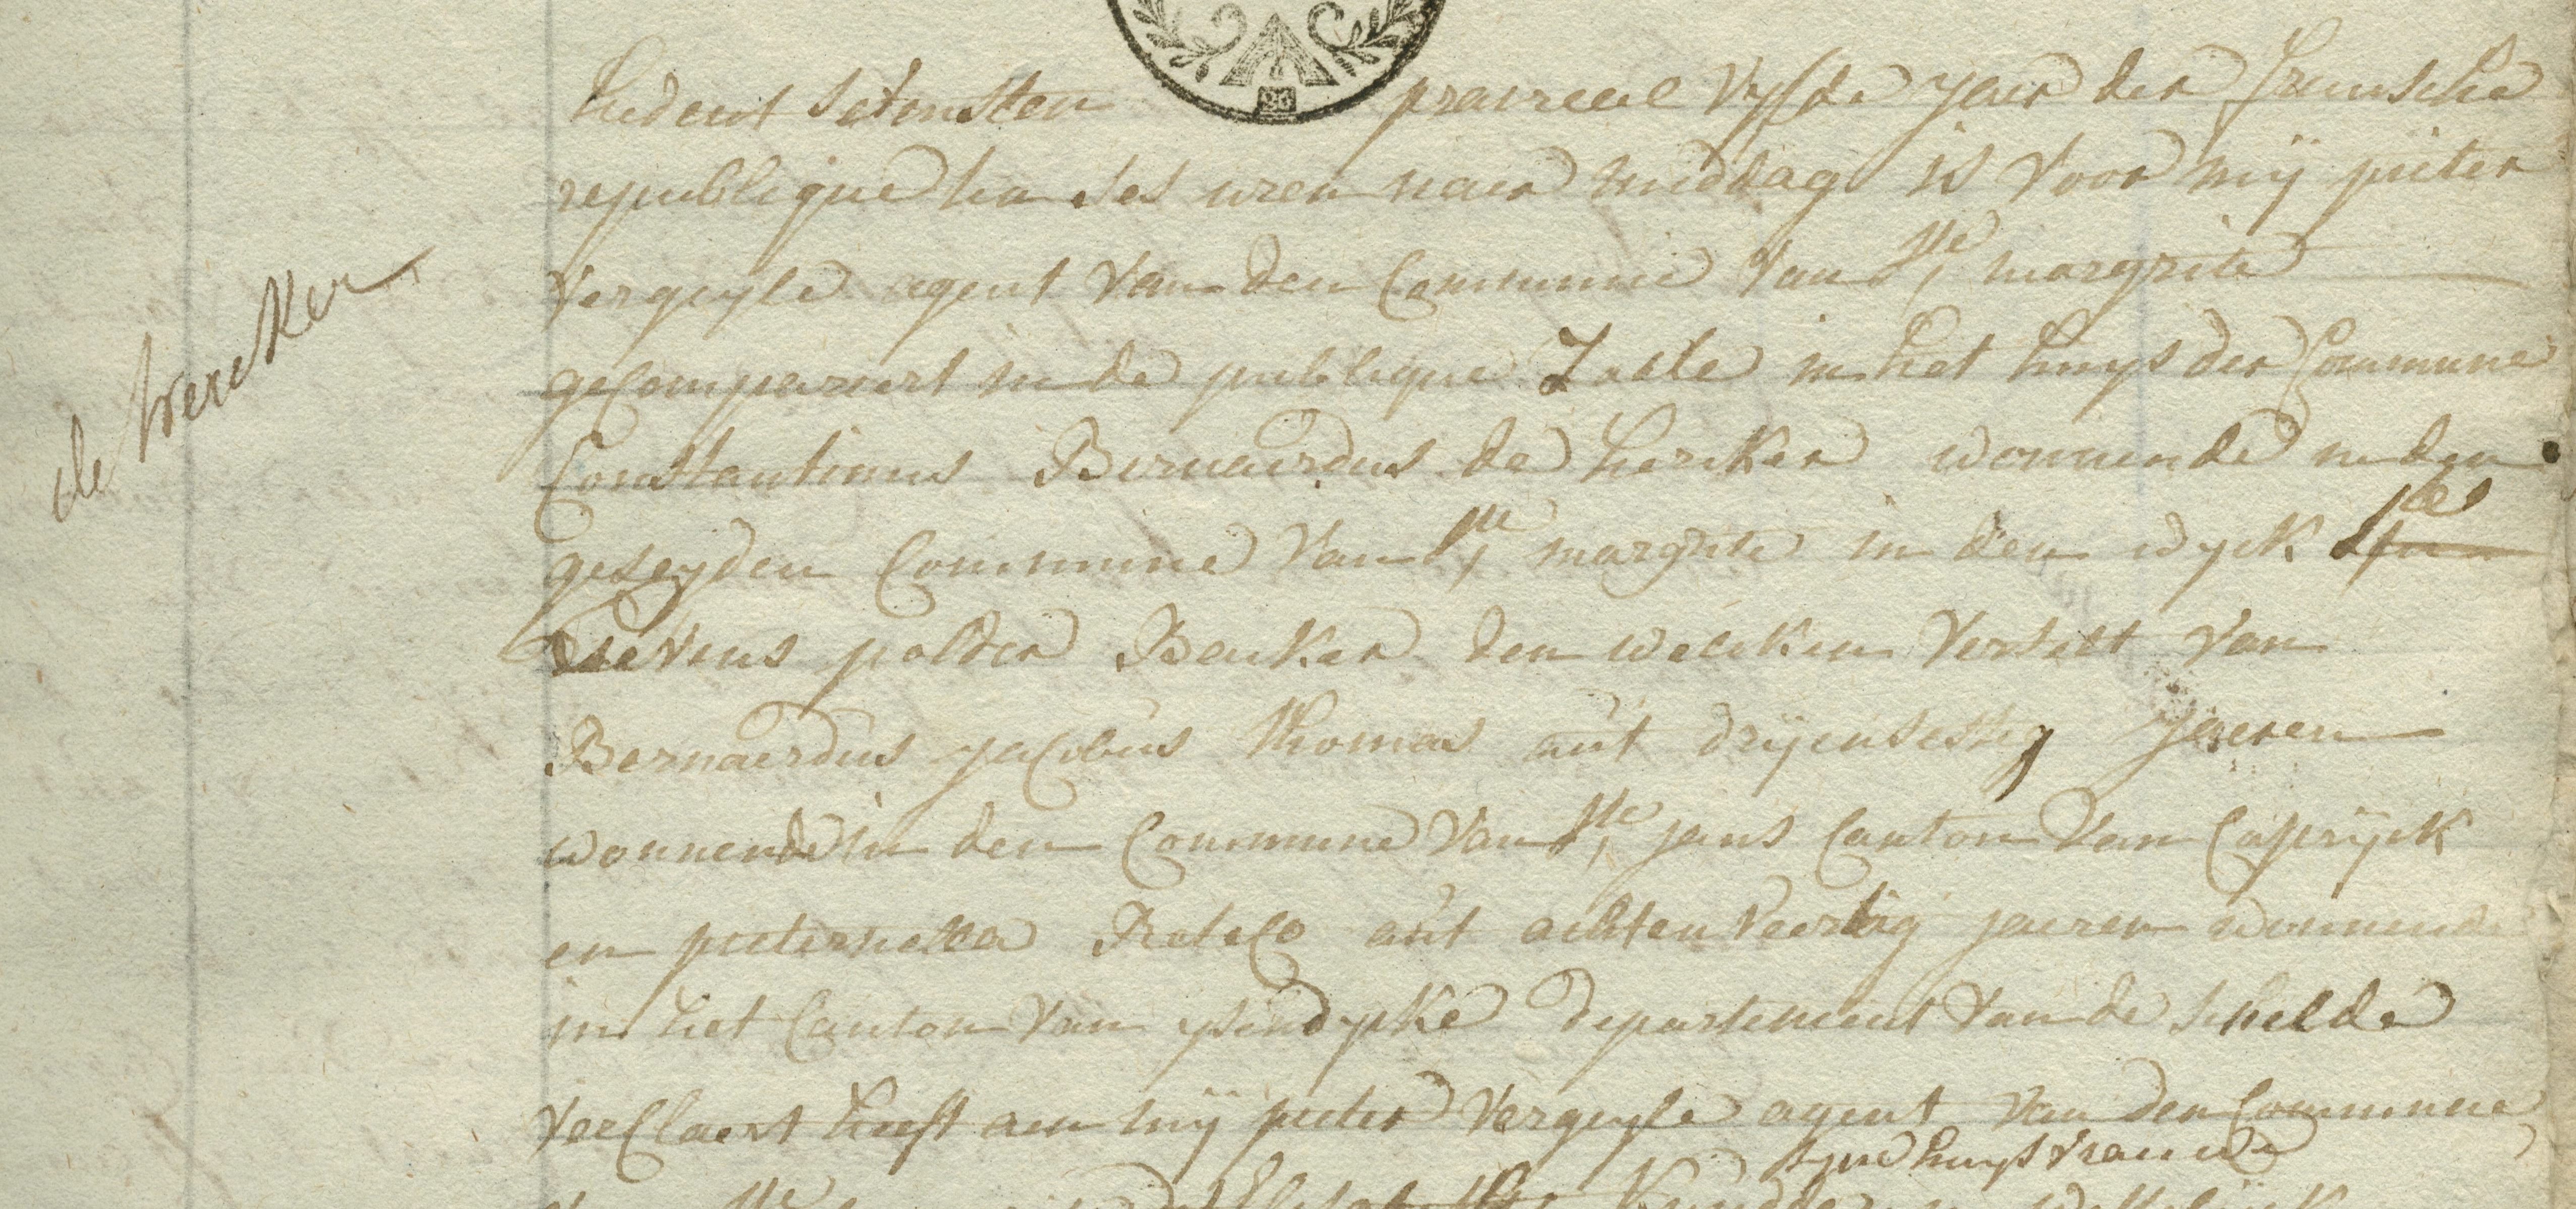 de hercker
hedent sesensten prairael vyfde jaer der fransche
republique ten ses uren naer middag is voor mij pieter
verguyle agent van den Commune van Ste, margrite
geCompareert in de publique Zaele in het huys der Commune
Constantinus Bernaerdus de hercker wonnende in den
geseyden Commune van Ste, margrite in den wyck
polder Backer den welcken verselt van
Bernaerdus jaCobus thomas aut dryensestig Jaeren
wonnende in den Commune van Ste, jans Canton van Capryck
en pieternella aut achtenveertig jaeren wonnende
in het Canton van ysendycke departement van de schelde
verClaert heeft aen mij pieter verguyle agent van den Commune
syne huysvrauwe